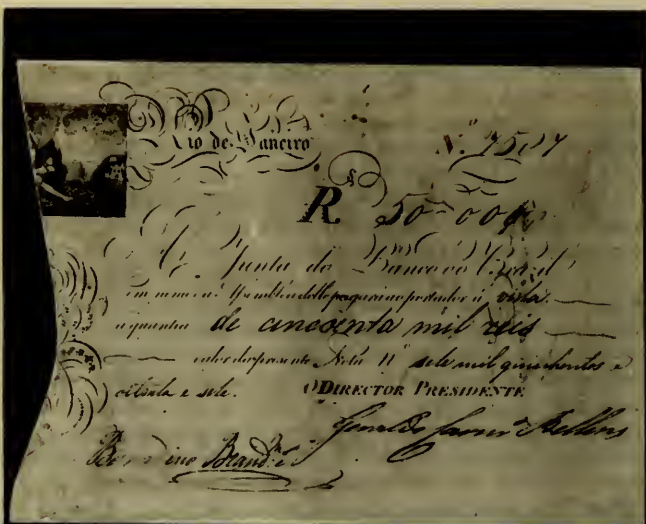 Rio de Janeiro
N.º 7587
R.s 50=000
A Junta do Banco do Brazil
em nome da Assembléa delle pagará ao portador á vista
a quantia de cincoenta mil reis
valor da presente Nota N.º sete mil quinhentos e
oitenta e sete. O DIRECTOR PRESIDENTE